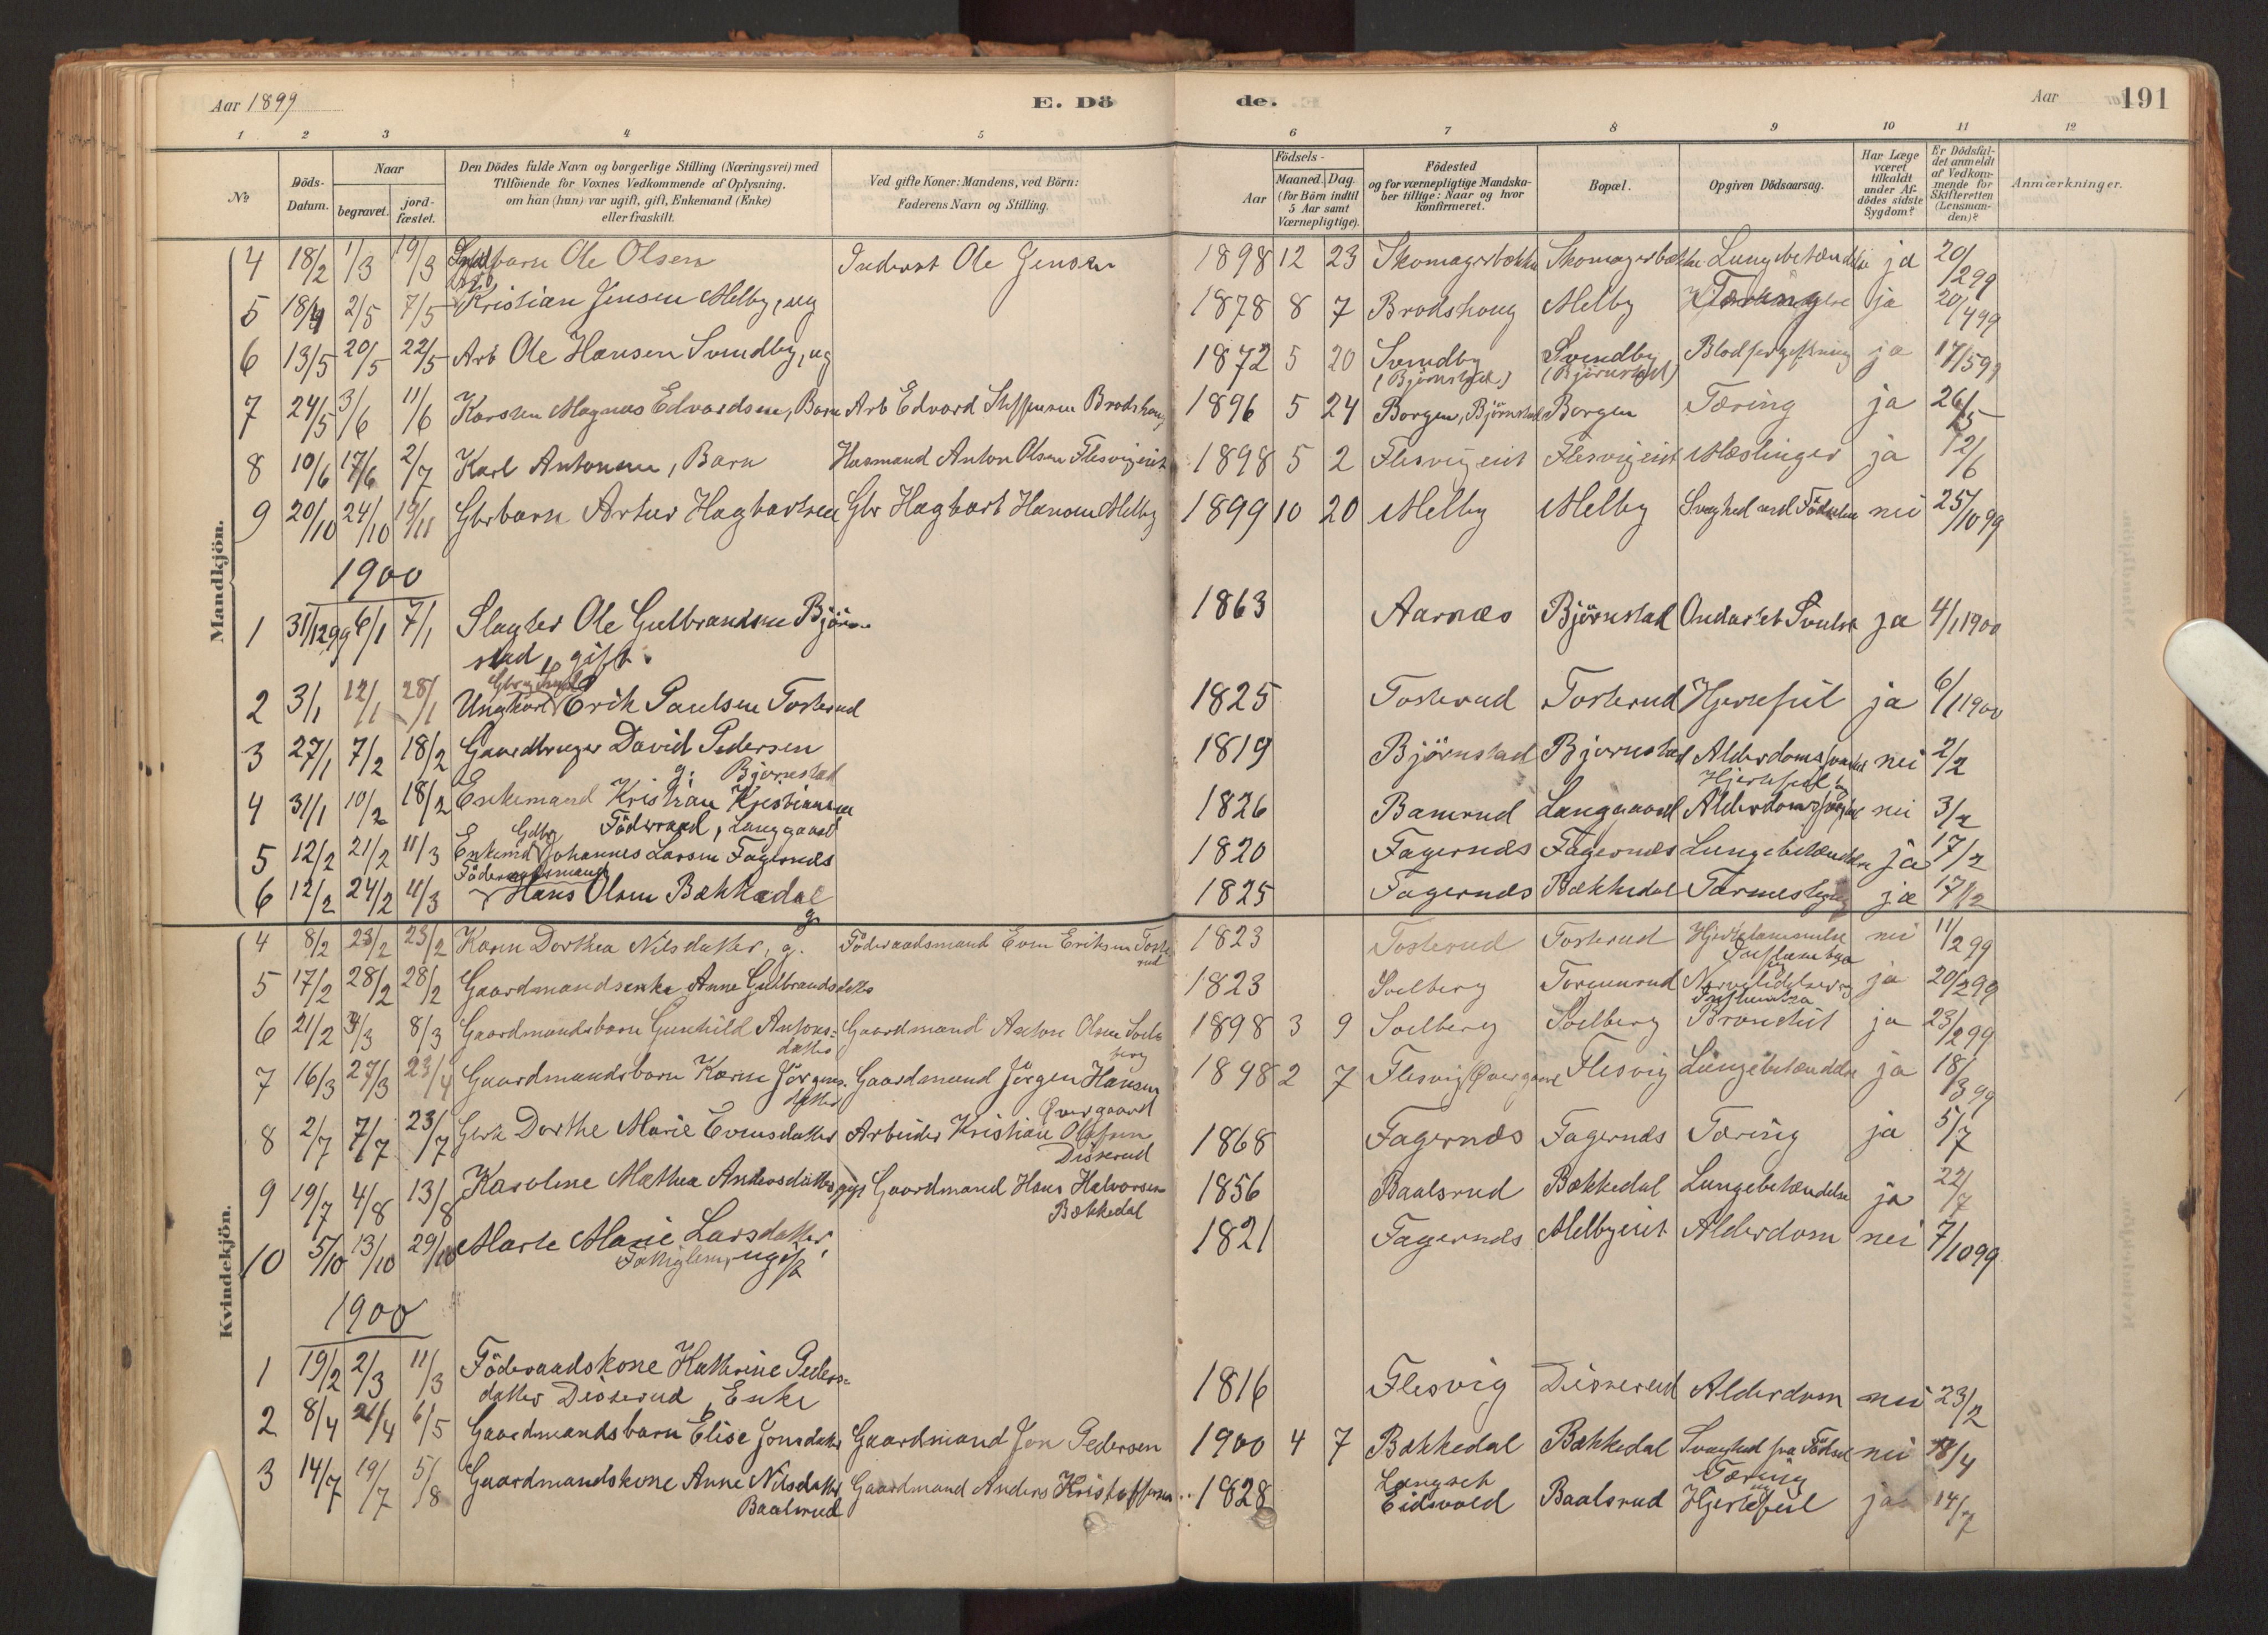 Aar 1899 E. Dö de. Aar 191
1 2 3 4 5 6 7 8 9 10 11 12
No Döds-Datum. Naar begravet. jordfæstet. Den Dödes fulde Navn og borgerlige Stilling (Næringsvei) med Tilföiende for Voxnes Vedkommende af Oplysning, om han (hun) var ugift, gift, Enkemand (Enke) eller fraskilt. Ved gifte Koner: Mandens, ved Börn: Faderens Navn og Stilling. Aar Födsels- Maaned. Dag. (for Börn indtil 5 Aar samt Værnepligtige). Födested og for værnepligtige Mandskaber tillige: Naar og hvor konfirmeret. Bopæl. Opgiven Dödsaarsag. Har Læge været tilkaldt under Afdödes sidste Sygdom? Er Dödsfaldet anmeldt af Vedkommende for Skifteretten (Lensmanden)? Anmærkninger.
Mandkjön.
4 18/2 1/3 19/3 barn Ole Olsen Inderst Ole Jensen 1898 12 23 Skomagerbækken Skomagerbækken Lungebetændelse ja 20/2 99
5 18/4 2/5 7/5 Kristian Jensen Melby, ug 1878 8 7 Brodshoug Melby Tæring ja 20/4 99
6 13/5 20/5 22/5 Arb Ole Hansen Svendby, ug 1872 5 20 Svendby (Björnstad) Svendby (Björnstad) Blodforgiftning ja 17/5 99
7 24/5 3/6 11/6 Karsten Magnus Edvardsen, Barn Arb Edvard Steffensen Brodshoug 1896 5 24 Borgen, Björnstad Borgen Tæring ja 26/5
8 10/6 17/6 2/7 Karl Antonsen, Barn Husmand Anton Olsen Flesvigeiet 1898 5 2 Flesvigeiet Flesvigeiet Mæslinger ja 12/6
9 20/10 24/10 19/11 Gbrbarn Artur Hagbartsen Gbr Hagbart Hansen Melby 1899 10 20 Melby Melby Svaghed ved Födselen nei 25/10 99
1900
1 31/12 99 6/1 7/1 Slagter Ole Gulbrandsen Björnstad, gift. 1863 Aarnæs Björnstad Ondartet Svulst ja 4/1 1900
2 3/1 12/1 28/1 Ungkarl Erik Paulsen Tosterud 1825 Tosterud Tosterud Hjertefeil ja 6/1 1900
3 27/1 7/2 18/2 Gaardbruger David Pedersen
g. Bjørnstad 1819 Björnstad Bjørnstad Alderdomssvaghed nei 2/2
4 31/1 10/2 18/2 Enkemand Kristian Kristiansen
Föderaad, Langgaard 1826 Bamrud Langgaard Hjertefeil, Alderdomssvaghed nei 3/2
5 12/2 21/2 11/3 Enkemd Gdbr Johannes Larsen Fagernæs 1820 Fagernæs Fagernæs Lungebetændelse ja 17/2
6 12/2 24/2 11/3 Föderaadsmand Hans Olsen Bækkedal
g. 1825 Fagernæs Bækkedal ja 17/2
Kvindekjön.
4 8/2 23/2 23/2 Karen Dorthea Nilsdatter, g. Föderaadsmand Even Eriksen Tosterud 1823 Tosterud Tosterud Hjertelammelse Influentsa nei 11/2 99
5 17/2 28/2 28/2 Gaardmandsenke Anne Gulbrandsdatter 1823 Soelberg Torunrud Nervelidelse og Influentsa ja 20/2 99
6 21/2 3/3 8/3 Gaardmandsbarn Gunhild Antonsdatter Gaardmand Anton Olsen Soelberg 1898 3 9 Soelberg Soelberg Bronchit ja 23/2 99
7 16/3 27/3 23/4 Gaardmandsbarn Karen Jörgensdatter Gaardmand Jörgen Hansen Overgaard 1898 2 7 Flesvig Overgaard Flesvig Lungebetændelse ja 18/3 99
8 2/7 7/7 23/7 Dorthe Marie Evensdatter Arbeider Kristian Olafsen Disserud 1868 Fagernæs Fagernæs Tæring ja 5/7
9 19/7 4/8 13/8 Karoline Mathea Andersdatter gift Gaardmand Hans Halvorsen Bækkedal 1856 Baalsrud Bækkedal Lungebetændelse ja 22/7
10 5/10 13/10 29/10 Marte Marie Larsdatter,
Fattiglem, ugift 1821 Fagernæs Melbyeiet Alderdom nei 7/10 99
1900
1 19/2 2/3 11/3 Föderaadskone Kathrine Pedersdatter Disserud, Enke 1816 Flesvig Disserud Alderdom nei 23/2
2 8/4 21/4 6/5 Gaardmandsbarn Elise Jonsdatter Gaardmand Jon Pedersen 1900 4 7 Bækkedal Bækkedal Svaghed fra Födsel nei 18/4
3 14/7 19/7 5/8 Gaardmandskone Anne Nilsdatter
Baalsrud Gaardmand Anders Kristoffersen 1828 Langset Eidsvold Baalsrud Tæring og Hjertefeil ja 14/7